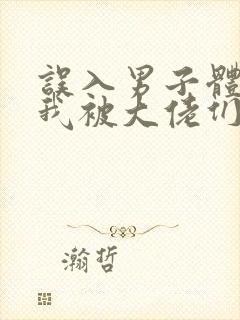 誤入男子體
我被大佬们
瀚哲